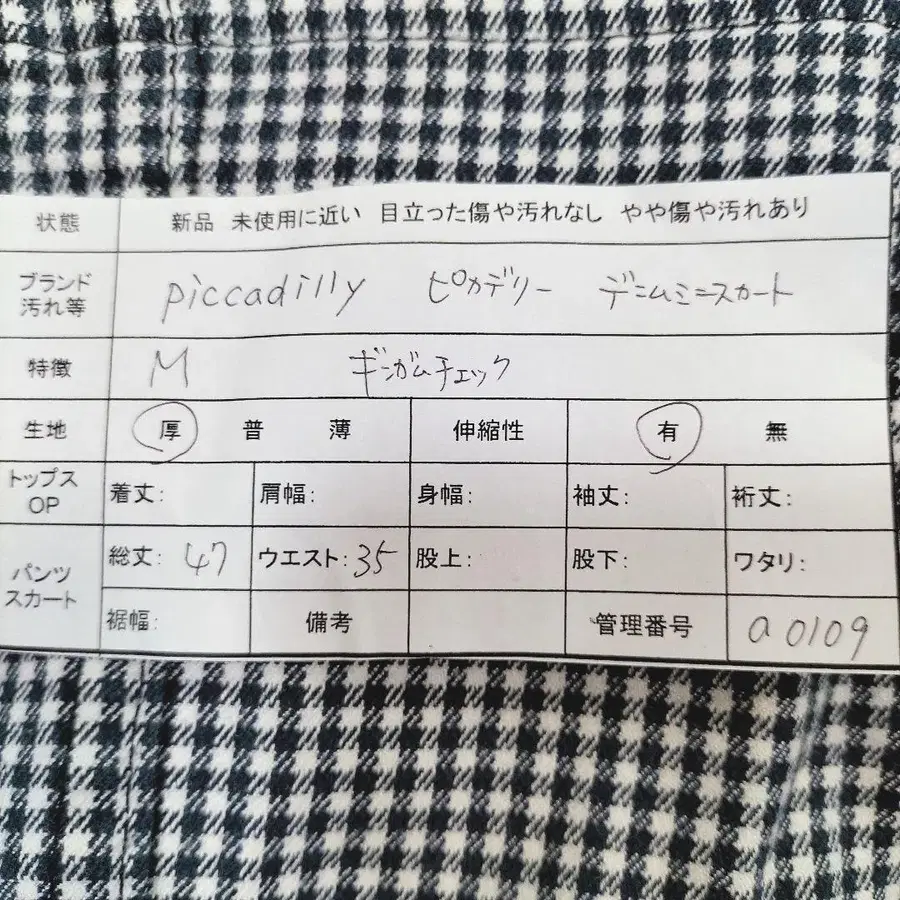 状態 新品 未使用に近い 目立った傷や汚れなし やや傷や汚れあり
ブランド 汚れ等 piccadilly ピカデリー デニムミニスカート
特徴 M ギンガムチェック
生地 厚 普 薄 伸縮性 有 無
トップス OP 着丈: 肩幅: 身幅: 袖丈: 裄丈:
パンツ スカート 総丈: 47 ウエスト: 35 股上: 股下: ワタリ:
裾幅: 備考 管理番号 a0109